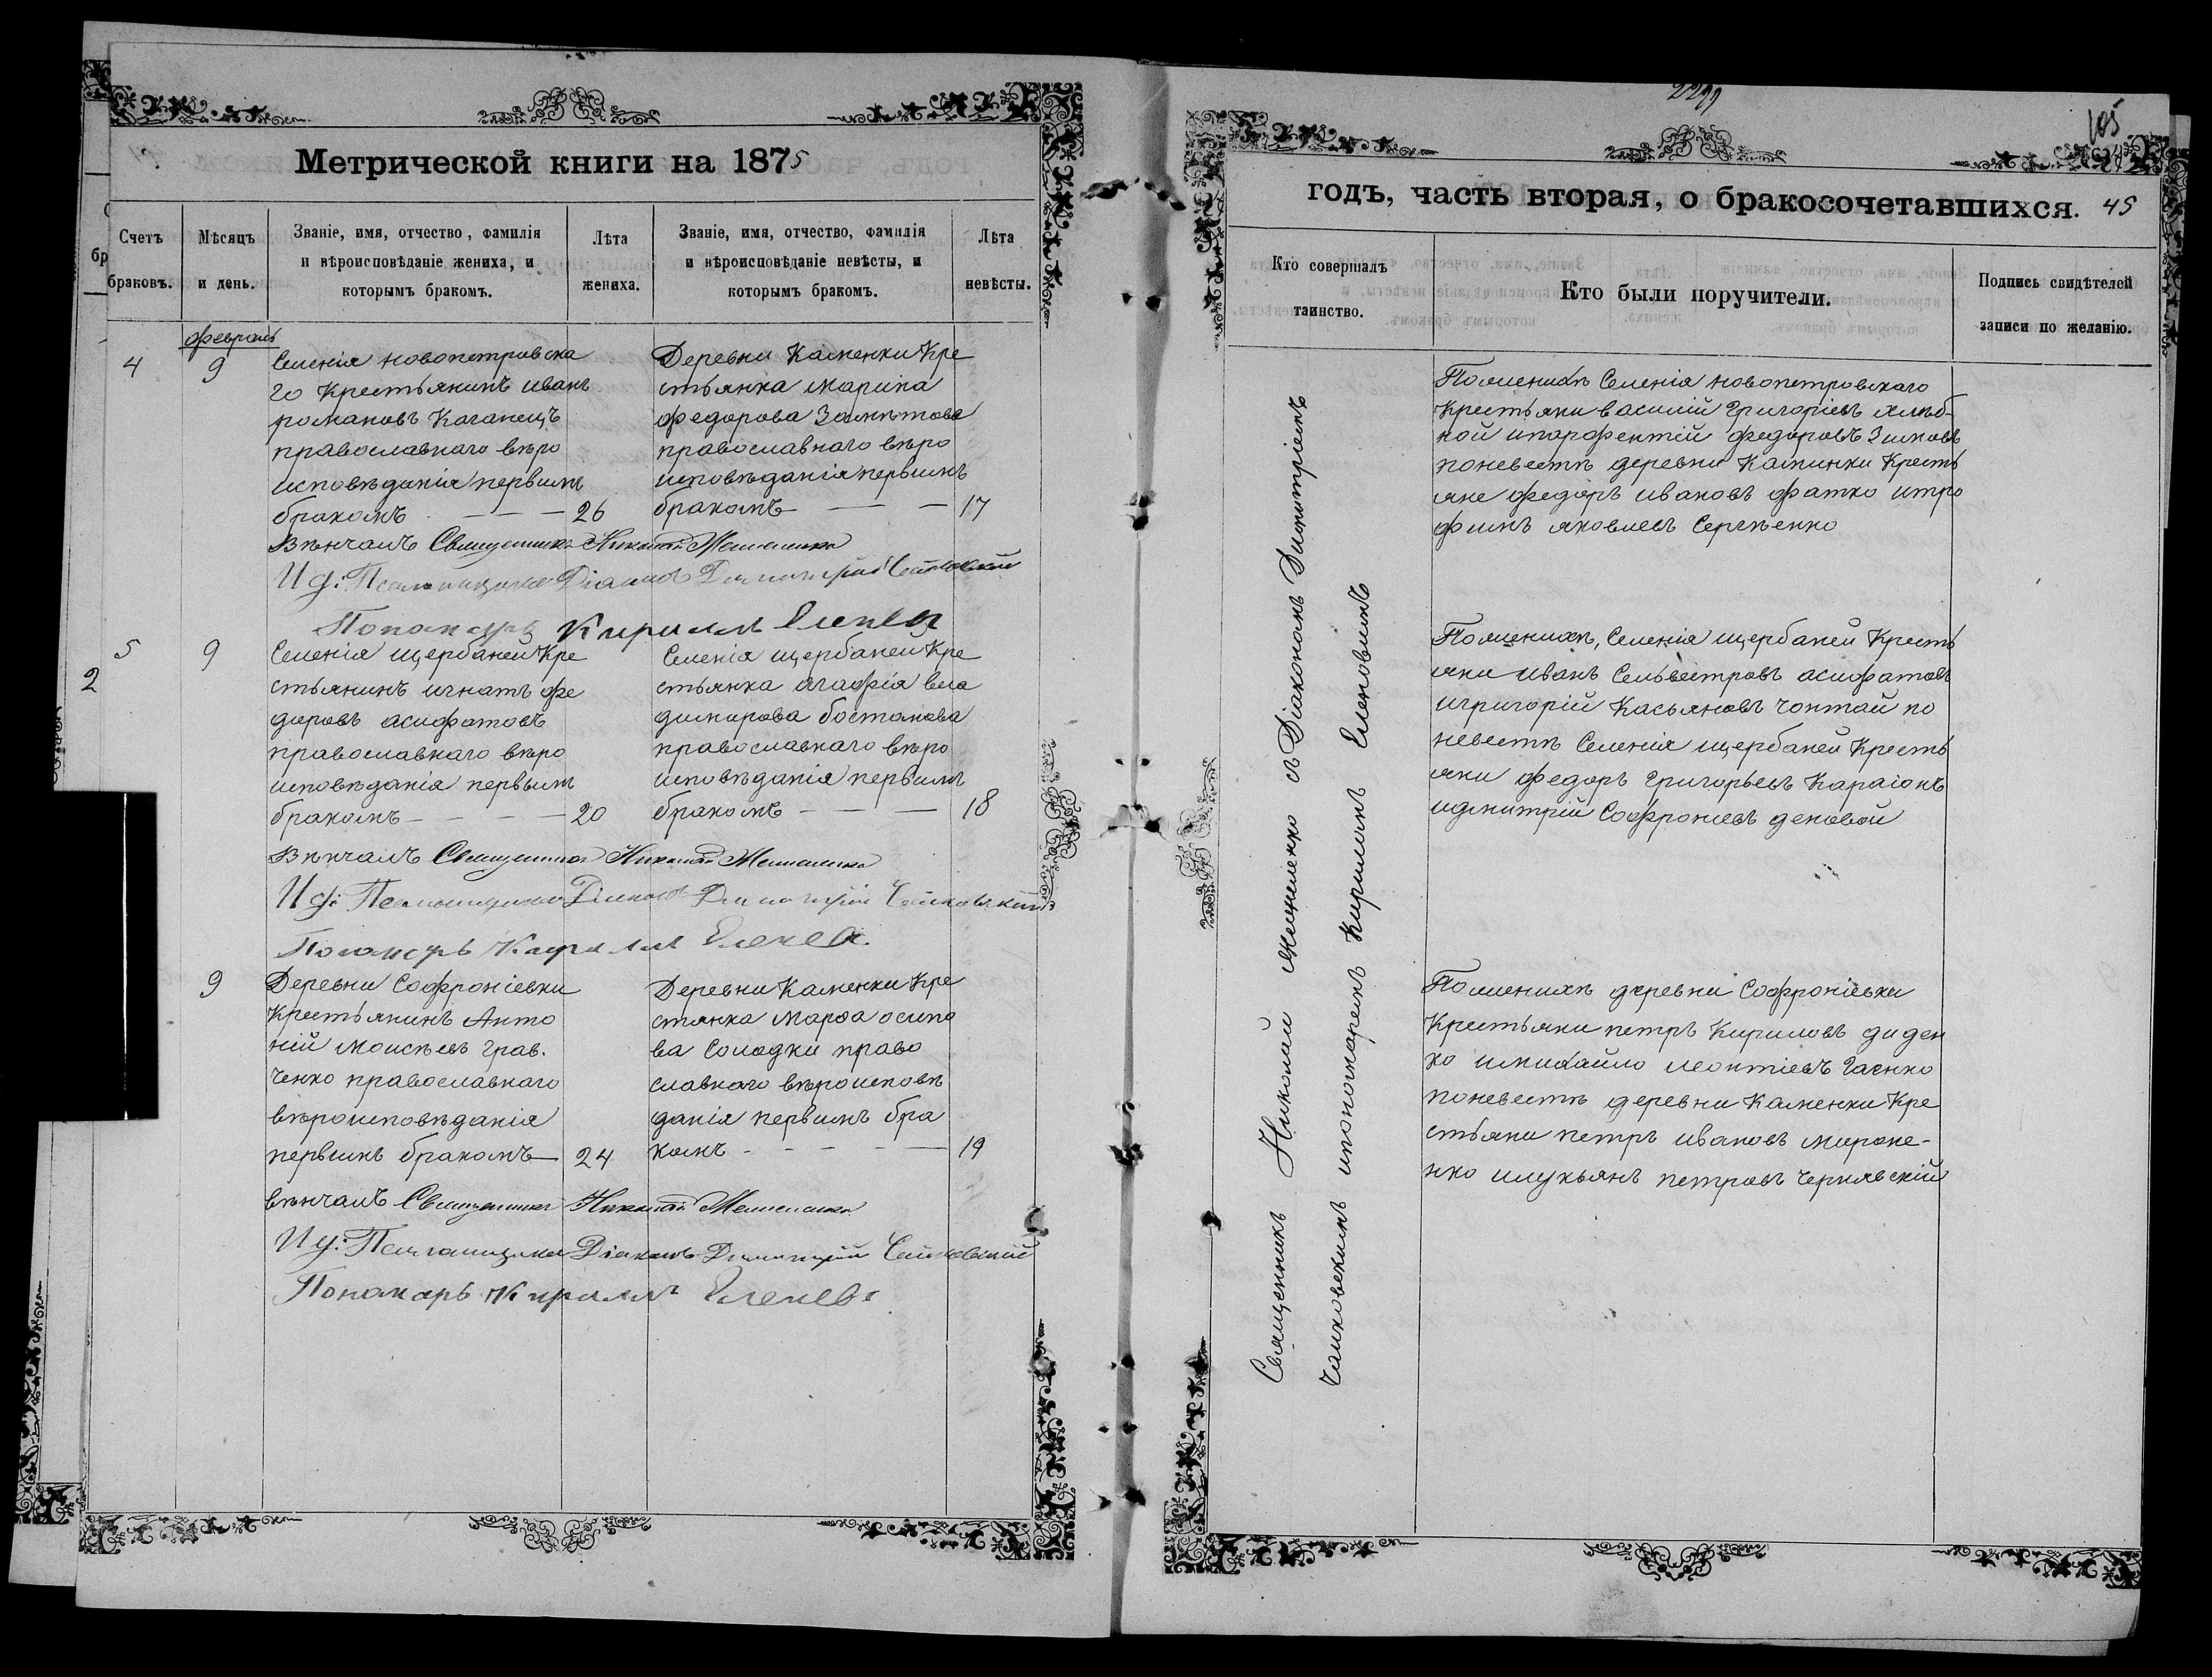 Метрической книги на 1875
Счетъ браковъ.
Мѣсяцъ и день.
Званіе, имя, отчество, фамилія
и вѣроисповѣданіе жениха, и
которымъ бракомъ.
Лѣта
жениха.
Званіе, имя, отчество, фамилія
и вѣроисповѣданіе невѣсты, и
которымъ бракомъ.
Лѣта
невѣсты.
февраль
4
9
Селенія новопетровска
го Крестьянинъ иванъ
романовъ Каганецъ
православнаго вѣро
исповѣданія первымъ
бракомъ
26
Деревни Каменки Кре
стьянка марина
федорова
православнаго вѣро
исповѣданія первымъ
бракомъ
17
Вѣнчалъ Священникъ Николай
И д: Псаломщика Діаконъ Димитрій Чайковскій
Пономарь Кириллъ Еленевъ
5
9
Селенія щербаней Кре
стьянинъ игнатъ фе
доровъ асифатовъ
православнаго вѣро
исповѣданія первымъ
бракомъ
20
Селенія щербаней Кре
стьянка агафія вла
димирова бостанова
православнаго вѣро
исповѣданія первымъ
бракомъ
18
2
Вѣнчалъ Священникъ Николай
И д: Псаломщика Діаконъ Димитрій Чайковскій
Пономарь Кириллъ Еленевъ
9
Деревни Софроніевки
Крестьянинъ Анто
ній Моисѣевъ Грав.
ченко православнаго
вѣроисповѣданія
первымъ бракомъ
24
Деревни Каменки Кре
стянка Марѳа осипо
ва Солодки право
славнаго вѣроисповѣ
данія первымъ бра
комъ
19
вѣнчалъ Священникъ Николай
И д: Псаломщика Діаконъ Димитрій Чайковскій
Пономарь Кириллъ Еленевъ
105
годъ, часть вторая, о бракосочетавшихся. 45
Кто совершалъ
таинство.
Кто были поручители.
Подпись свидѣтелей
записи по желанію.
Священникъ Николай съ Діакономъ Димитріемъ
Чайковскимъ ипономаремъ Кириломъ Еленовимъ
Пожениху Селенія новопетровскаго
Крестьяни василій Григоріевъ
ипарфентій федоровъ
поневестѣ деревни Каминки Кресть
яне федоръ ивановъ фатко итро
фимъ яковлевъ Сергѣенко
Пожениху, Селенія щербаней Кресть
яни иванъ Сельвестровъ асифатовъ
игригорій Касьяновъ чоптай по
невестѣ Селенія щербаней Кресть
яни федоръ Григорьевъ Караіонъ
идмитрій Софроніевъ деновой
Пожениху деревни Софроніевки
Крестьяни петръ Кириловъ диден
ко имихайло леонтіевъ Гаенко
поневестѣ деревни Каменки Кре
стьяни петръ ивановъ мироне-
нко илукьянъ петровъ Чернявскій